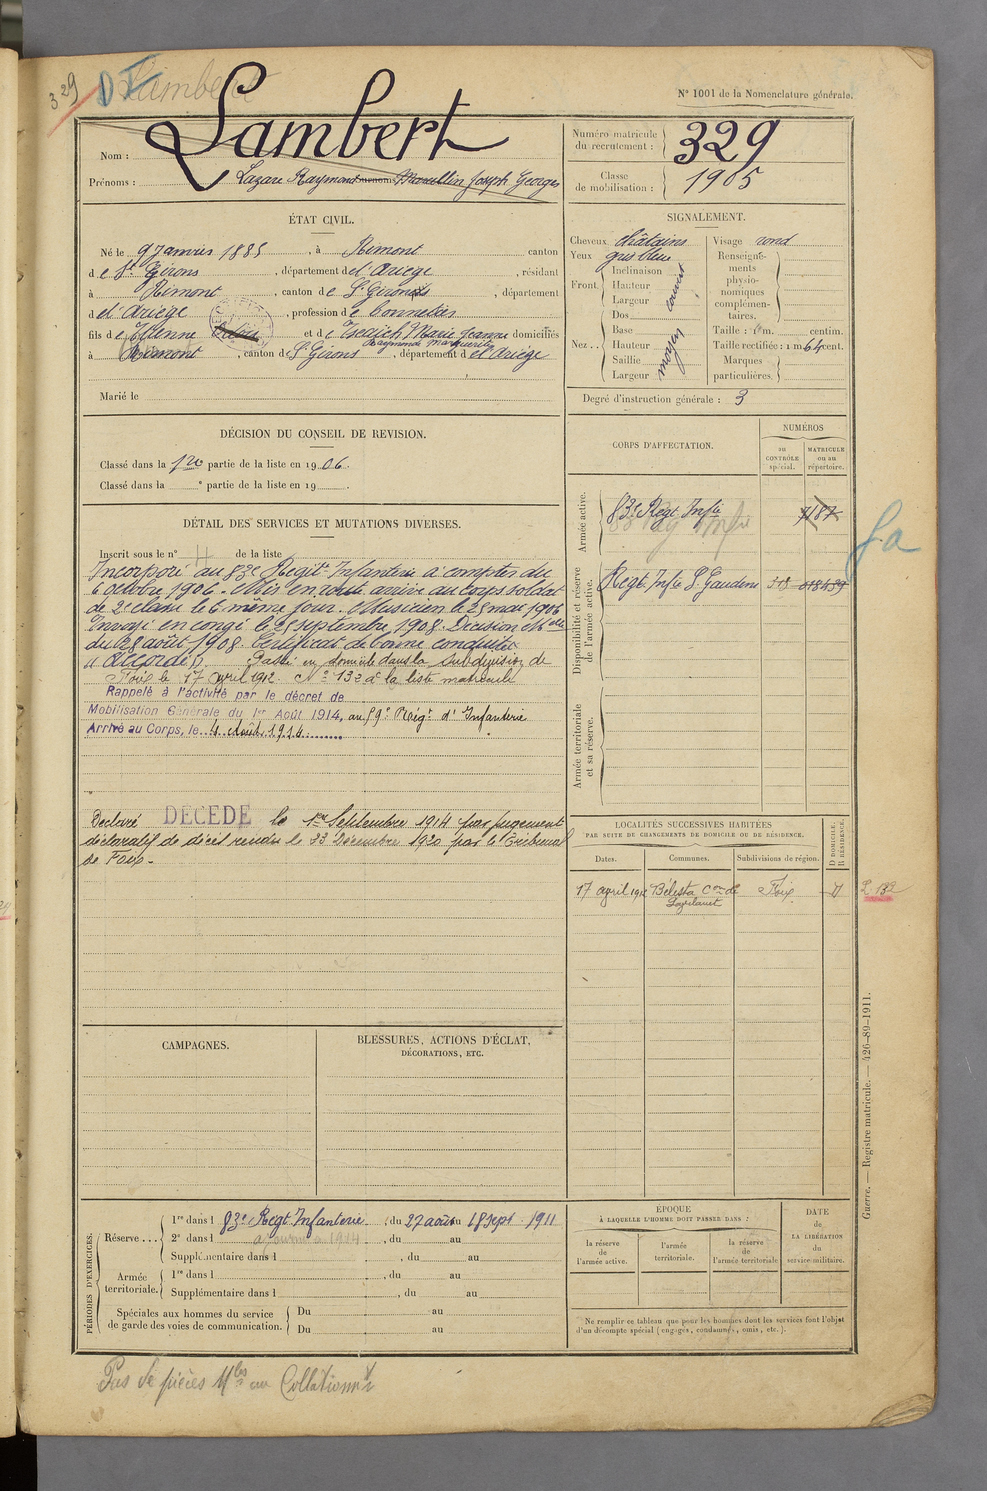 329
Lambert
N° 1001 de la Nomenclature générale.
Nom : Lambert
Prénoms : Lazare Raymond surnoms Marcellin Joseph Georges
Numéro matricule du recrutement : 329
Classe de mobilisation : 1905
ÉTAT CIVIL.
Né le 9 Janvier 1885, à Rimont canton
de St Girons, département de l'Ariège, résidant
à Rimont, canton de St Girons, département
de l'Ariège, profession de Connetier
fils de Etienne et de Marie Jeanne domiciliés
Raymonde Marguerite
à Rimont, canton de St Girons, département de l'Ariège
Marié le
SIGNALEMENT.
Cheveux châtains
Yeux gris bleu
Front Inclinaison Hauteur Largeur couvert
Nez Dos Base Hauteur Saillie Largeur moyen
Visage rond
Renseignements physionomiques complémentaires.
Taille : 1 m. centim.
Taille rectifiée : 1 m. 64 cent.
Marques particulières.
Degré d'instruction générale : 3
DÉCISION DU CONSEIL DE REVISION.
Classé dans la 1re partie de la liste en 1906.
Classé dans la e partie de la liste en 19 .
DÉTAIL DES SERVICES ET MUTATIONS DIVERSES.
Inscrit sous le n° 4 de la liste
Incorporé au 83e Régit Infanterie à compter du
6 octobre 1906. Mis en route arrivé au corps soldat
de 2e classe le 6 même jour. Musicien le 25 mai 1906
Envoyé en congé le 25 septembre 1908. Décision Mlle
du 28 août 1908. Certificat de bonne conduite
accordé. Passé en domicile dans la subdivision de
Foix le 17 avril 1912. N° 132 de la liste matricule
Rappelé à l'activité par le décret de
Mobilisation Générale du 1er Août 1914, au 59e Régt d'Infanterie
Arrivé au Corps, le 4 Août 1914
Déclaré DÉCÉDÉ le 1er Septembre 1914 par jugement
déclaratif de décès rendu le 23 Décembre 1920 par le Tribunal
de Foix.
CORPS D'AFFECTATION.
NUMÉROS
au CONTRÔLE spécial.
MATRICULE ou au répertoire.
Armée active.
83e Régt Infie
7187
Disponibilité et réserve de l'armée active.
Régt Infie St Gaudens
Armée territoriale et sa réserve.
fa
LOCALITÉS SUCCESSIVES HABITÉES
PAR SUITE DE CHANGEMENTS DE DOMICILE OU DE RÉSIDENCE.
Dates. Communes. Subdivisions de région. D DOMICILE. R RÉSIDENCE.
17 avril 1912 Bélesta Con de Lavelanet Foix D
132
CAMPAGNES.
BLESSURES, ACTIONS D'ÉCLAT,
DÉCORATIONS, ETC.
PÉRIODES D'EXERCICES.
Réserve... 1re dans l 83e Régt Infanterie, du 27 août au 18 sept 1911
2e dans l , du au
Supplémentaire dans l , du au
Armée territoriale. 1re dans l , du au
Supplémentaire dans l , du au
Spéciales aux hommes du service de garde des voies de communication. Du au
Du au
ÉPOQUE
À LAQUELLE L'HOMME DOIT PASSER DANS :
la réserve de l'armée active.
l'armée territoriale.
la réserve de l'armée territoriale
DATE de LA LIBÉRATION du service militaire.
Ne remplir ce tableau que pour les hommes dont les services font l'objet
d'un décompte spécial (engagés, condamnés, omis, etc.).
Guerre. — Registre matricule. — 426-89-1911.
Pas de pièces Mles au Collationnt